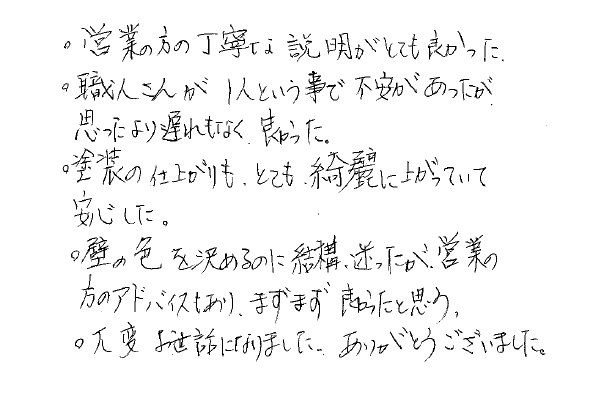 ○営業の方の丁寧な説明がとても良かった。
○職人さんが1人という事で不安があったが
思ったより遅れもなく、良かった。
○塗装の仕上がりも、とても、綺麗に上がっていて
安心した。
○壁の色を決めるのに結構、迷ったが、営業の
方のアドバイスもあり、まずまず良かったと思う。
○大変お世話になりました。ありがとうございました。